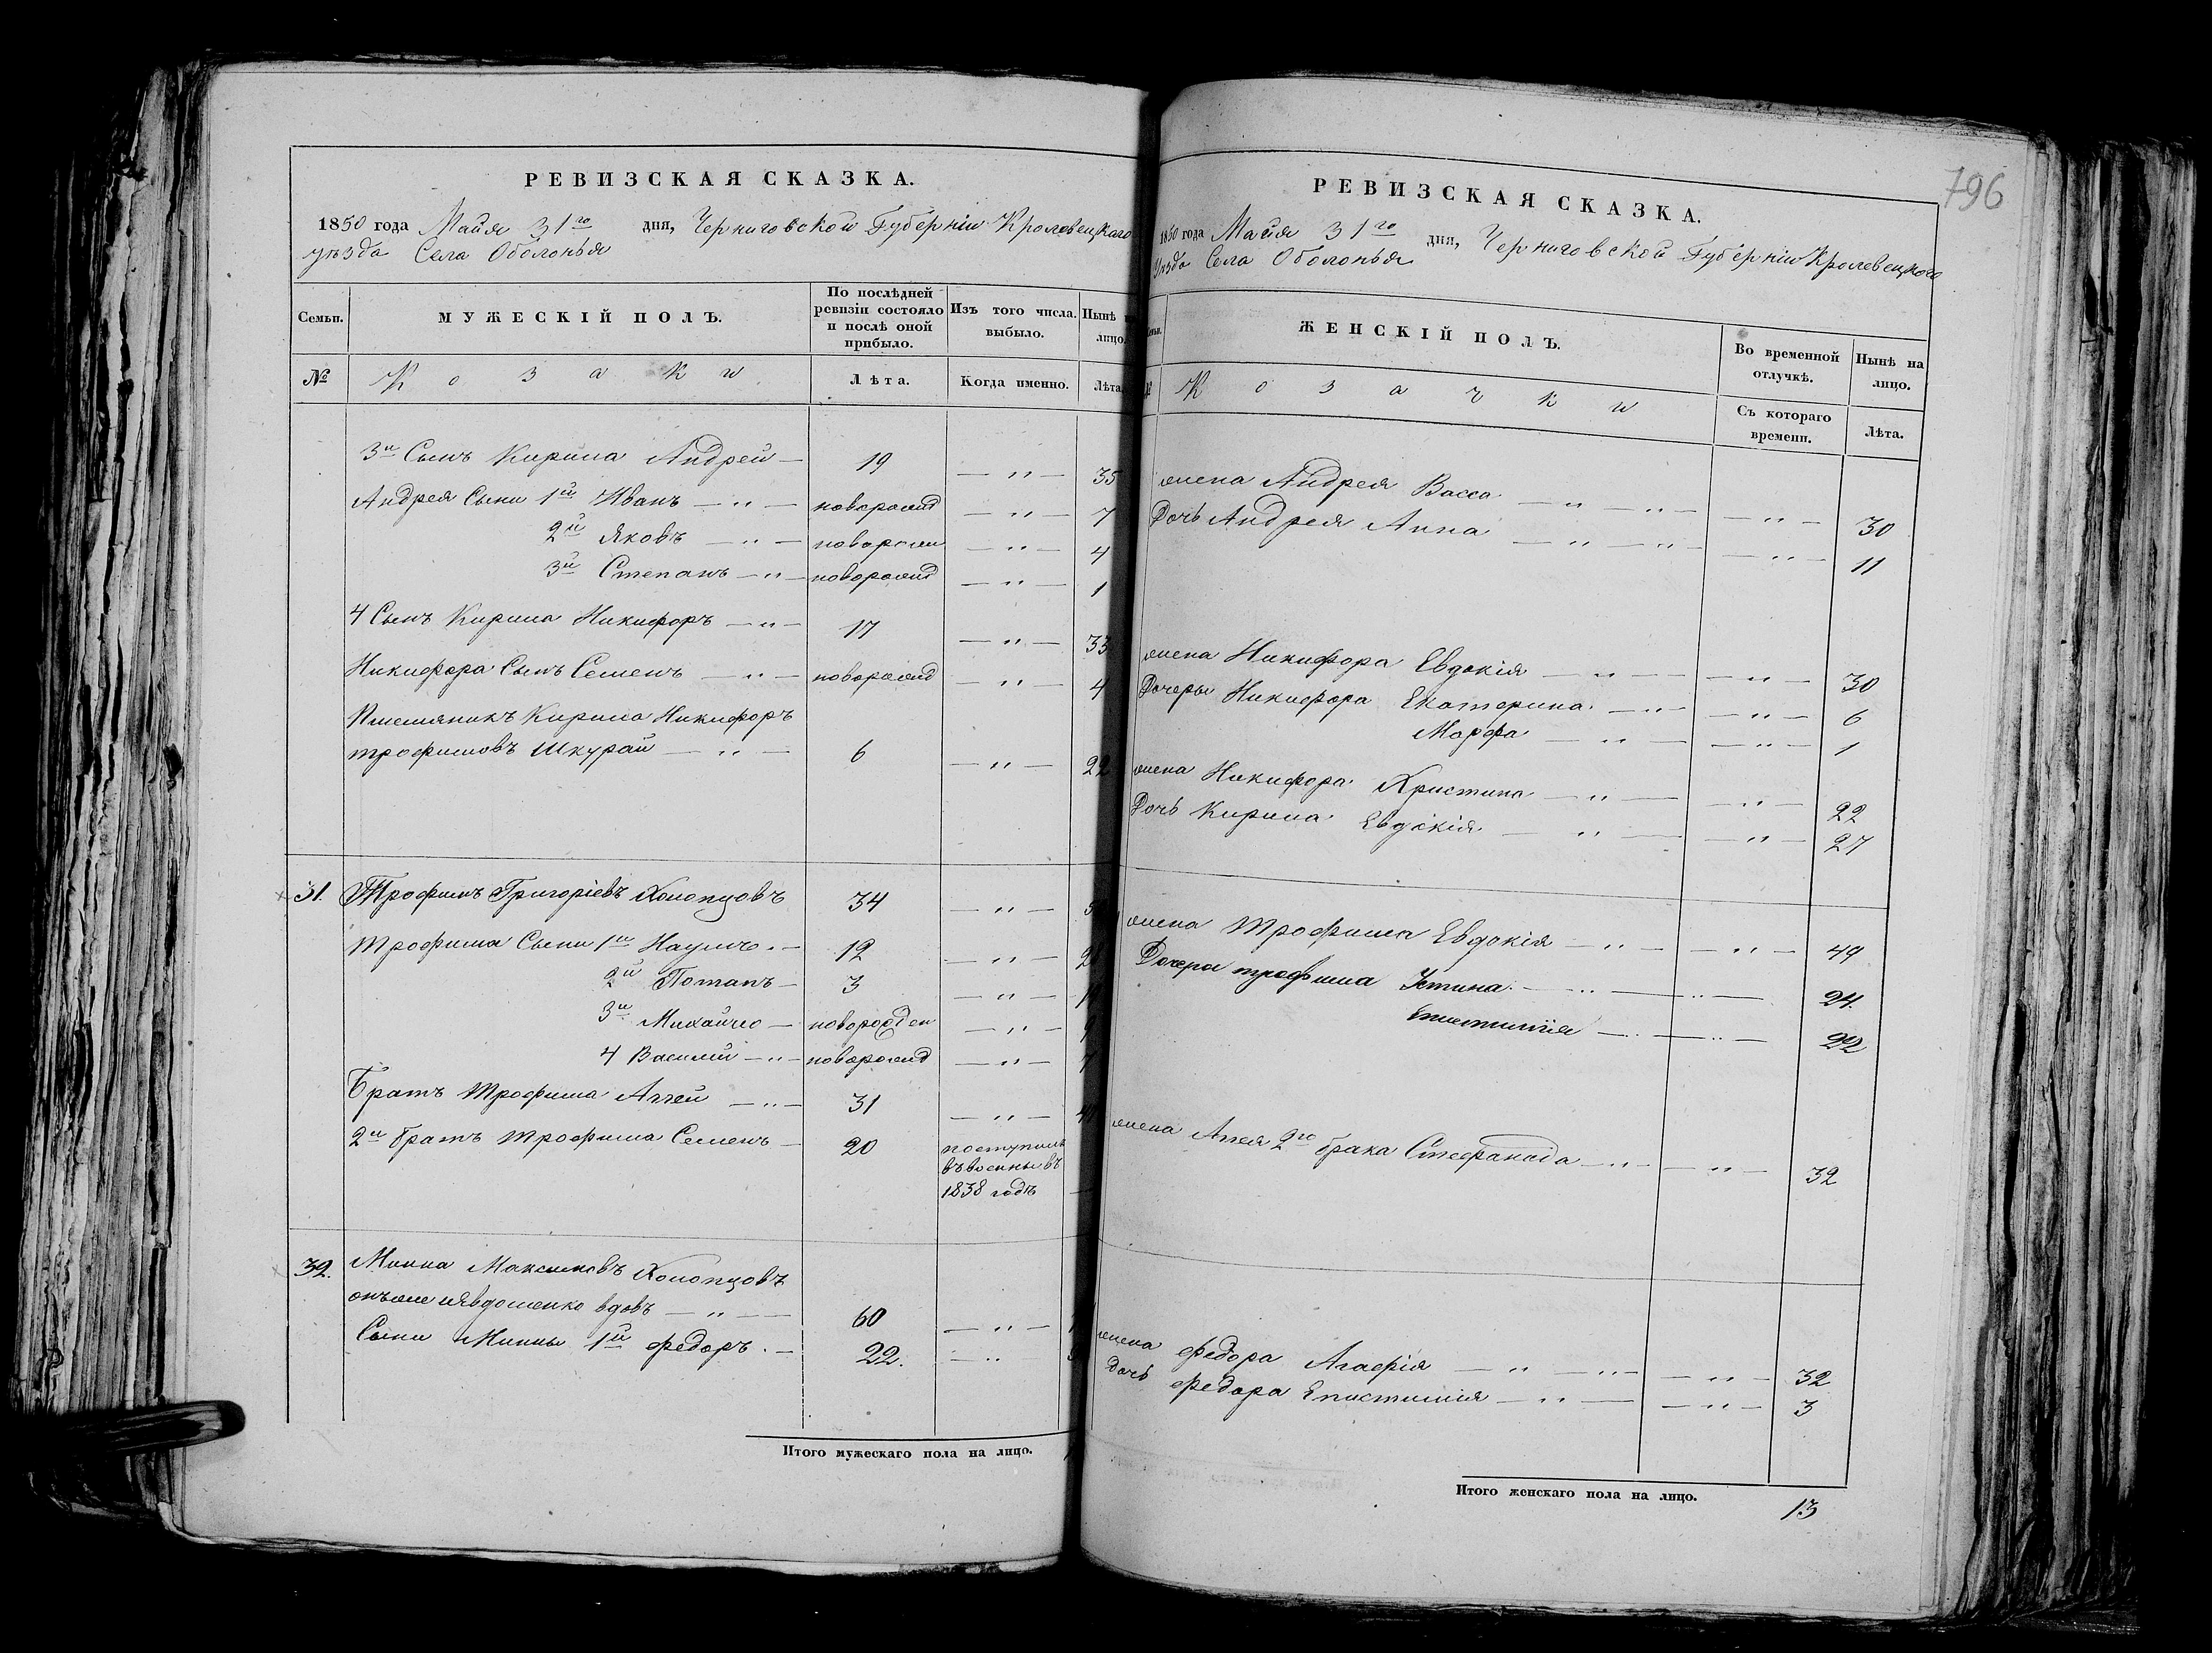 РЕВИЗСКАЯ СКАЗКА.
1850 года Майя 31го дня, Черниговской Губерніи Кролевецкаго
уѣзда Села Оболонья
Семьи.
МУЖЕСКІЙ ПОЛЪ.
По послѣдней ревизіи состояло и послѣ оной прибыло.
Изъ того числа выбыло.
Нынѣ лицо.
№
Козаки
Лѣта.
Когда именно.
Лѣта
3й Сынъ Кирила Андрей — 19 — " — 35
Андрея Сыни 1й Иванъ — " — новорожд — " — 7
2й Яковъ — " — новорожд — " — 4
3й Степанъ — " — новорожд — " — 1
4 Сынъ Кирила Никифоръ — " — 17 — " — 33
Никифора Сынъ Семенъ — " — новорожд — " — 4
Племяникъ Кирила Никифоръ
трофимовъ Шкурай — " — 6 — " — 22
31. Трофимъ Григоріевъ Холопцовъ 34 — " —
Трофима Сыни 1й Наумъ — 12 — " —
2й Потапъ — 3 — " —
3й Михайло — новорожден — " —
4 Василій — " — новорожд — " —
Братъ Трофима Аггей — " — 31 — " —
2й братъ Трофима Семенъ — 20 поступилъ
въ военны въ
1838 годѣ
32. Минна Максимовъ Холопцовъ
онъже Явдошенко вдовъ — " — 60 — " —
Сыни Минны 1й федоръ — 22. — " —
Итого мужескаго пола на лицо.
796
РЕВИЗСКАЯ СКАЗКА.
1850 года Майя 31го дня, Черниговской Губерніи Кролевецкого
Уѣзда Села Оболонья
ЖЕНСКІЙ ПОЛЪ.
Во временной отлучкѣ.
Нынѣ на лицо.
Козачки
Съ котораго времени.
Лѣта.
жена Андрея Васса — " — " — — " — 30
Дочь Андрея Анна — " — " — — " — 11
жена Никифора Евдокія — " — — " — 30
Дочеры Никифора Екатерина — " — — " — 6
Марфа — " — — " — 1
жена Никифора Христина — " — — " — 22
Дочь Кирила Евдокія — " — — " — 27
жена Трофима Евдокія — " — — " — 49
Дочери трофима Устина — " — " — 24.
Епистимія — " — " — 22
жена Аггея 2го брака Стефанида — " — — " — 32
жена федора Агафія — " — " — — " — 32
дочь федора Епистимія — " — — " — 3
Итого женскаго пола на лицо.
13